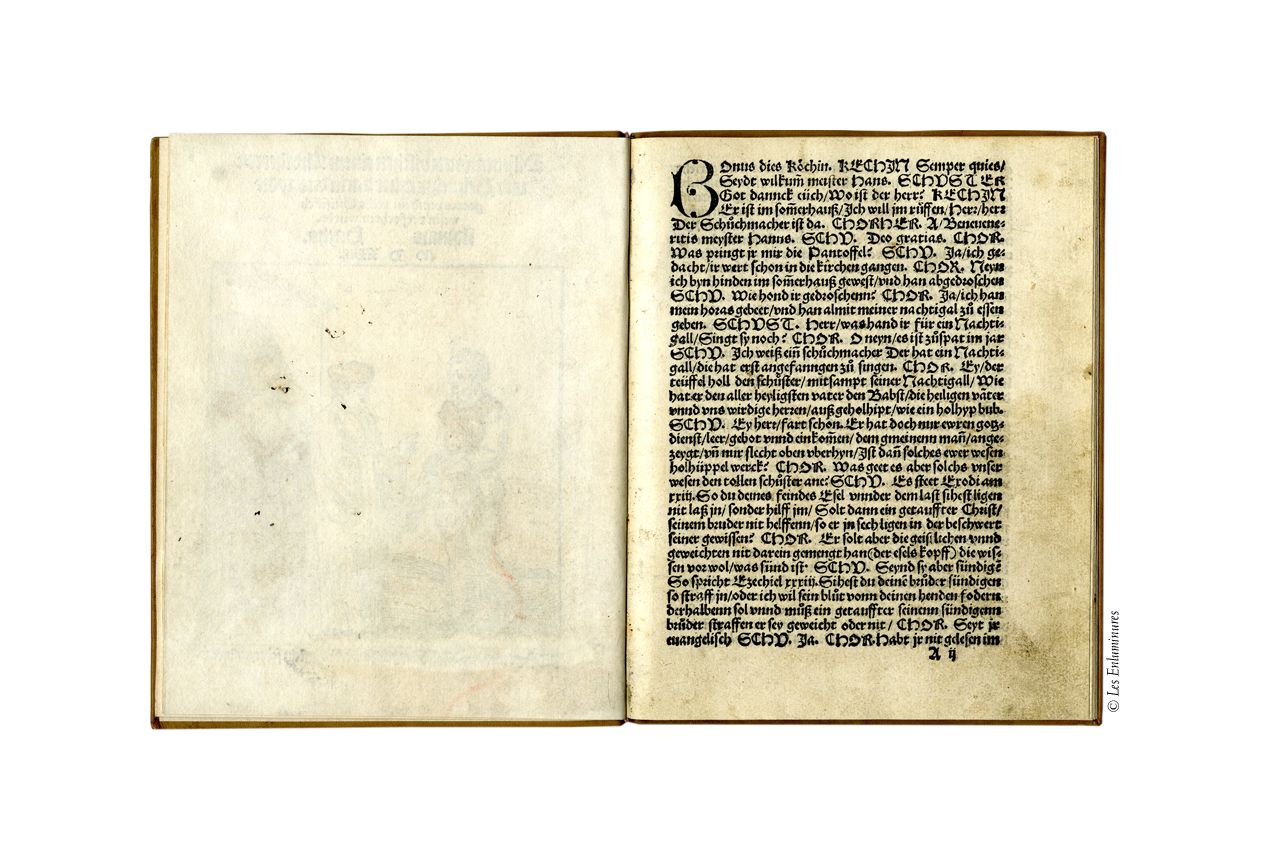 Bonus dies Köchin. KECHIN Semper quies/
Seydt wilkum̃ meister Hans. SCHVSTER
Got dannck eüch/Wo ist der herr? KECHIN
Er ist im som̃erhauß/Ich will jm rüffen/Herr/herr
Der Schůchmacher ist da. CHORHER. A/Beneuene-
ritis meyster Hanns. SCHV. Deo gratias. CHOR.
Was pringt jr mir die Pantoffel? SCHV. Ja/ich ge-
dacht/ir wert schon in die kirchen gangen. CHOR. Neyn
ich byn hinden im som̃erhauß gewest/vnd han abgedroschen
SCHV. Wie hond ir gedroschenn? CHOR. Ja/ich han
mein horas gebeet/vnd han almit meiner nachtigal zů essen
geben. SCHVST. Herr/was hand ir für ein Nachti-
gall/Singt sy noch? CHOR. O neyn/es ist zůspat im jar
SCHV. Ich weiß ein̄ schůchmacher Der hat ein Nachti-
gall/die hat erst angefanngen zů singen. CHOR. Ey/der
teüffel holl den schůster/mitsampt seiner Nachtigall/Wie
hat er den aller heyligsten vater den Babst/die heiligen väter
vnnd vns wirdige herren/außgeholhipt/wie ein holhyp bub.
SCHV. Ey herr/fart schon. Er hat doch nur ewren gotz-
dienst/leer/gebot vnnd einkom̃en/dem gmeinenn man̄/ange-
zeygt/vn̄ nur slecht oben vberhyn/Ist dan̄ solches ewer wesen
holhüppel werck? CHOR. Was geet es aber solchs vnser
wesen den tollen schůster ane? SCHV. Es steet Exodi am
xxiij. So du deines feindes Esel vnnder dem last sihest ligen
nit laß jn/sonder hilff jm/Solt dann ein getauffter Christ/
seinem bruder nit helffenn/so er jn sech ligen in der beschwert
seiner gewissen? CHOR. Er solt aber die geistlichen vnnd
geweichten nit darein gemengt han(der esels kopff) die wis-
sen vor wol/was sünd ist. SCHV. Seynd sy aber sündigē
So spricht Ezechiel xxxiij. Sihest du deinē brůder sündigen
so straff jn/oder ich wil sein blůt vonn deinen henden fodern
derhalbenn sol vnnd můß ein getauffter seinenn sündigenn
brůder straffen er sey geweicht oder nit/ CHOR. Seyt jr
euangelisch SCHV. Ja. CHOR. Habt jr nit gelesen im
A ij
© Les Enluminures